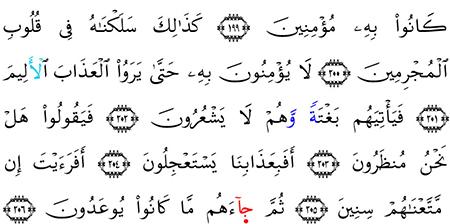 كَانُوا۟ بِهِۦ مُؤْمِنِينَ ﴿١٩٩﴾ كَذَٰلِكَ سَلَكْنَٰهُ فِى قُلُوبِ
الْمُجْرِمِينَ ﴿٢٠٠﴾ لَا يُؤْمِنُونَ بِهِۦ حَتَّىٰ يَرَوُا۟ الْعَذَابَ الْأَلِيمَ
﴿٢٠١﴾ فَيَأْتِيَهُم بَغْتَةً وَّهُمْ لَا يَشْعُرُونَ ﴿٢٠٢﴾ فَيَقُولُوا۟ هَلْ
نَحْنُ مُنظَرُونَ ﴿٢٠٣﴾ أَفَبِعَذَابِنَا يَسْتَعْجِلُونَ ﴿٢٠٤﴾ أَفَرَءَيْتَ إِن
مَّتَّعْنَٰهُمْ سِنِينَ ﴿٢٠٥﴾ ثُمَّ جَآءَهُم مَّا كَانُوا۟ يُوعَدُونَ ﴿٢٠٦﴾